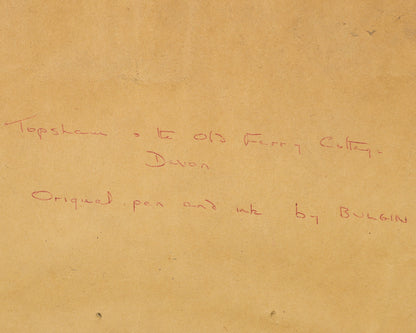 Topsham & the Old Ferry Cottage
Devon
Original pen and ink by BULGIN